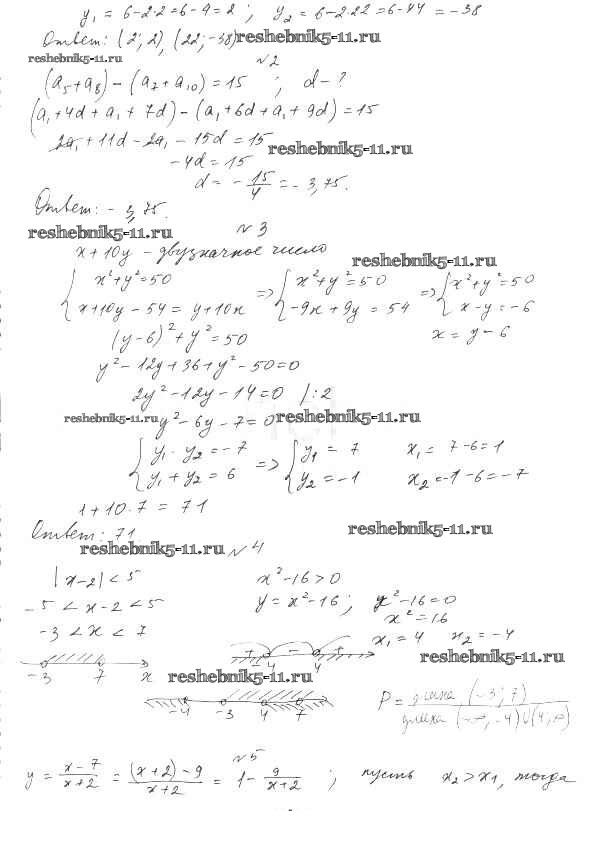 y₁ = 6-2·2=6-4=2 ; y₂ = 6-2·22=6-44=-38
Ответ: (2; 2), (22; -38) reshebnik5-11.ru
reshebnik5-11.ru №2
(a₅+a₈) - (a₇+a₁₀) = 15 ; d-?
(a₁+4d+a₁+7d) - (a₁+6d+a₁+9d) = 15
2a₁+11d-2a₁-15d=15 reshebnik5-11.ru
-4d=15
d = -15/4 = -3,75.
Ответ: -3,75.
reshebnik5-11.ru №3
x+10y - двузначное число reshebnik5-11.ru
{ x²+y²=50 => { x²+y²=50 => { x²+y²=50
x+10y-54=y+10x -9x+9y=54 x-y=-6
(y-6)²+y²=50 x=y-6
y²-12y+36+y²-50=0
2y²-12y-14=0 /:2
reshebnik5-11.ru y²-6y-7=0 reshebnik5-11.ru
{ y₁·y₂=-7 => { y₁=7 x₁=7-6=1
y₁+y₂=6 y₂=-1 x₂=-1-6=-7
1+10·7=71
Ответ: 71 reshebnik5-11.ru
reshebnik5-11.ru №4
|x-2|<5 x²-16>0
-5<x-2<5 y=x²-16; x²-16=0
x²=16
-3<x<7 x₁=4 x₂=-4
+ - + reshebnik5-11.ru
-3 7 x -4 4
reshebnik5-11.ru
-4 -3 4 7 P = длина (-3; 7) / длина (-∞, -4)∪(4, ∞)
№5
y = x-7/x+2 = (x+2)-9/x+2 = 1 - 9/x+2 ; пусть x₂>x₁, тогда